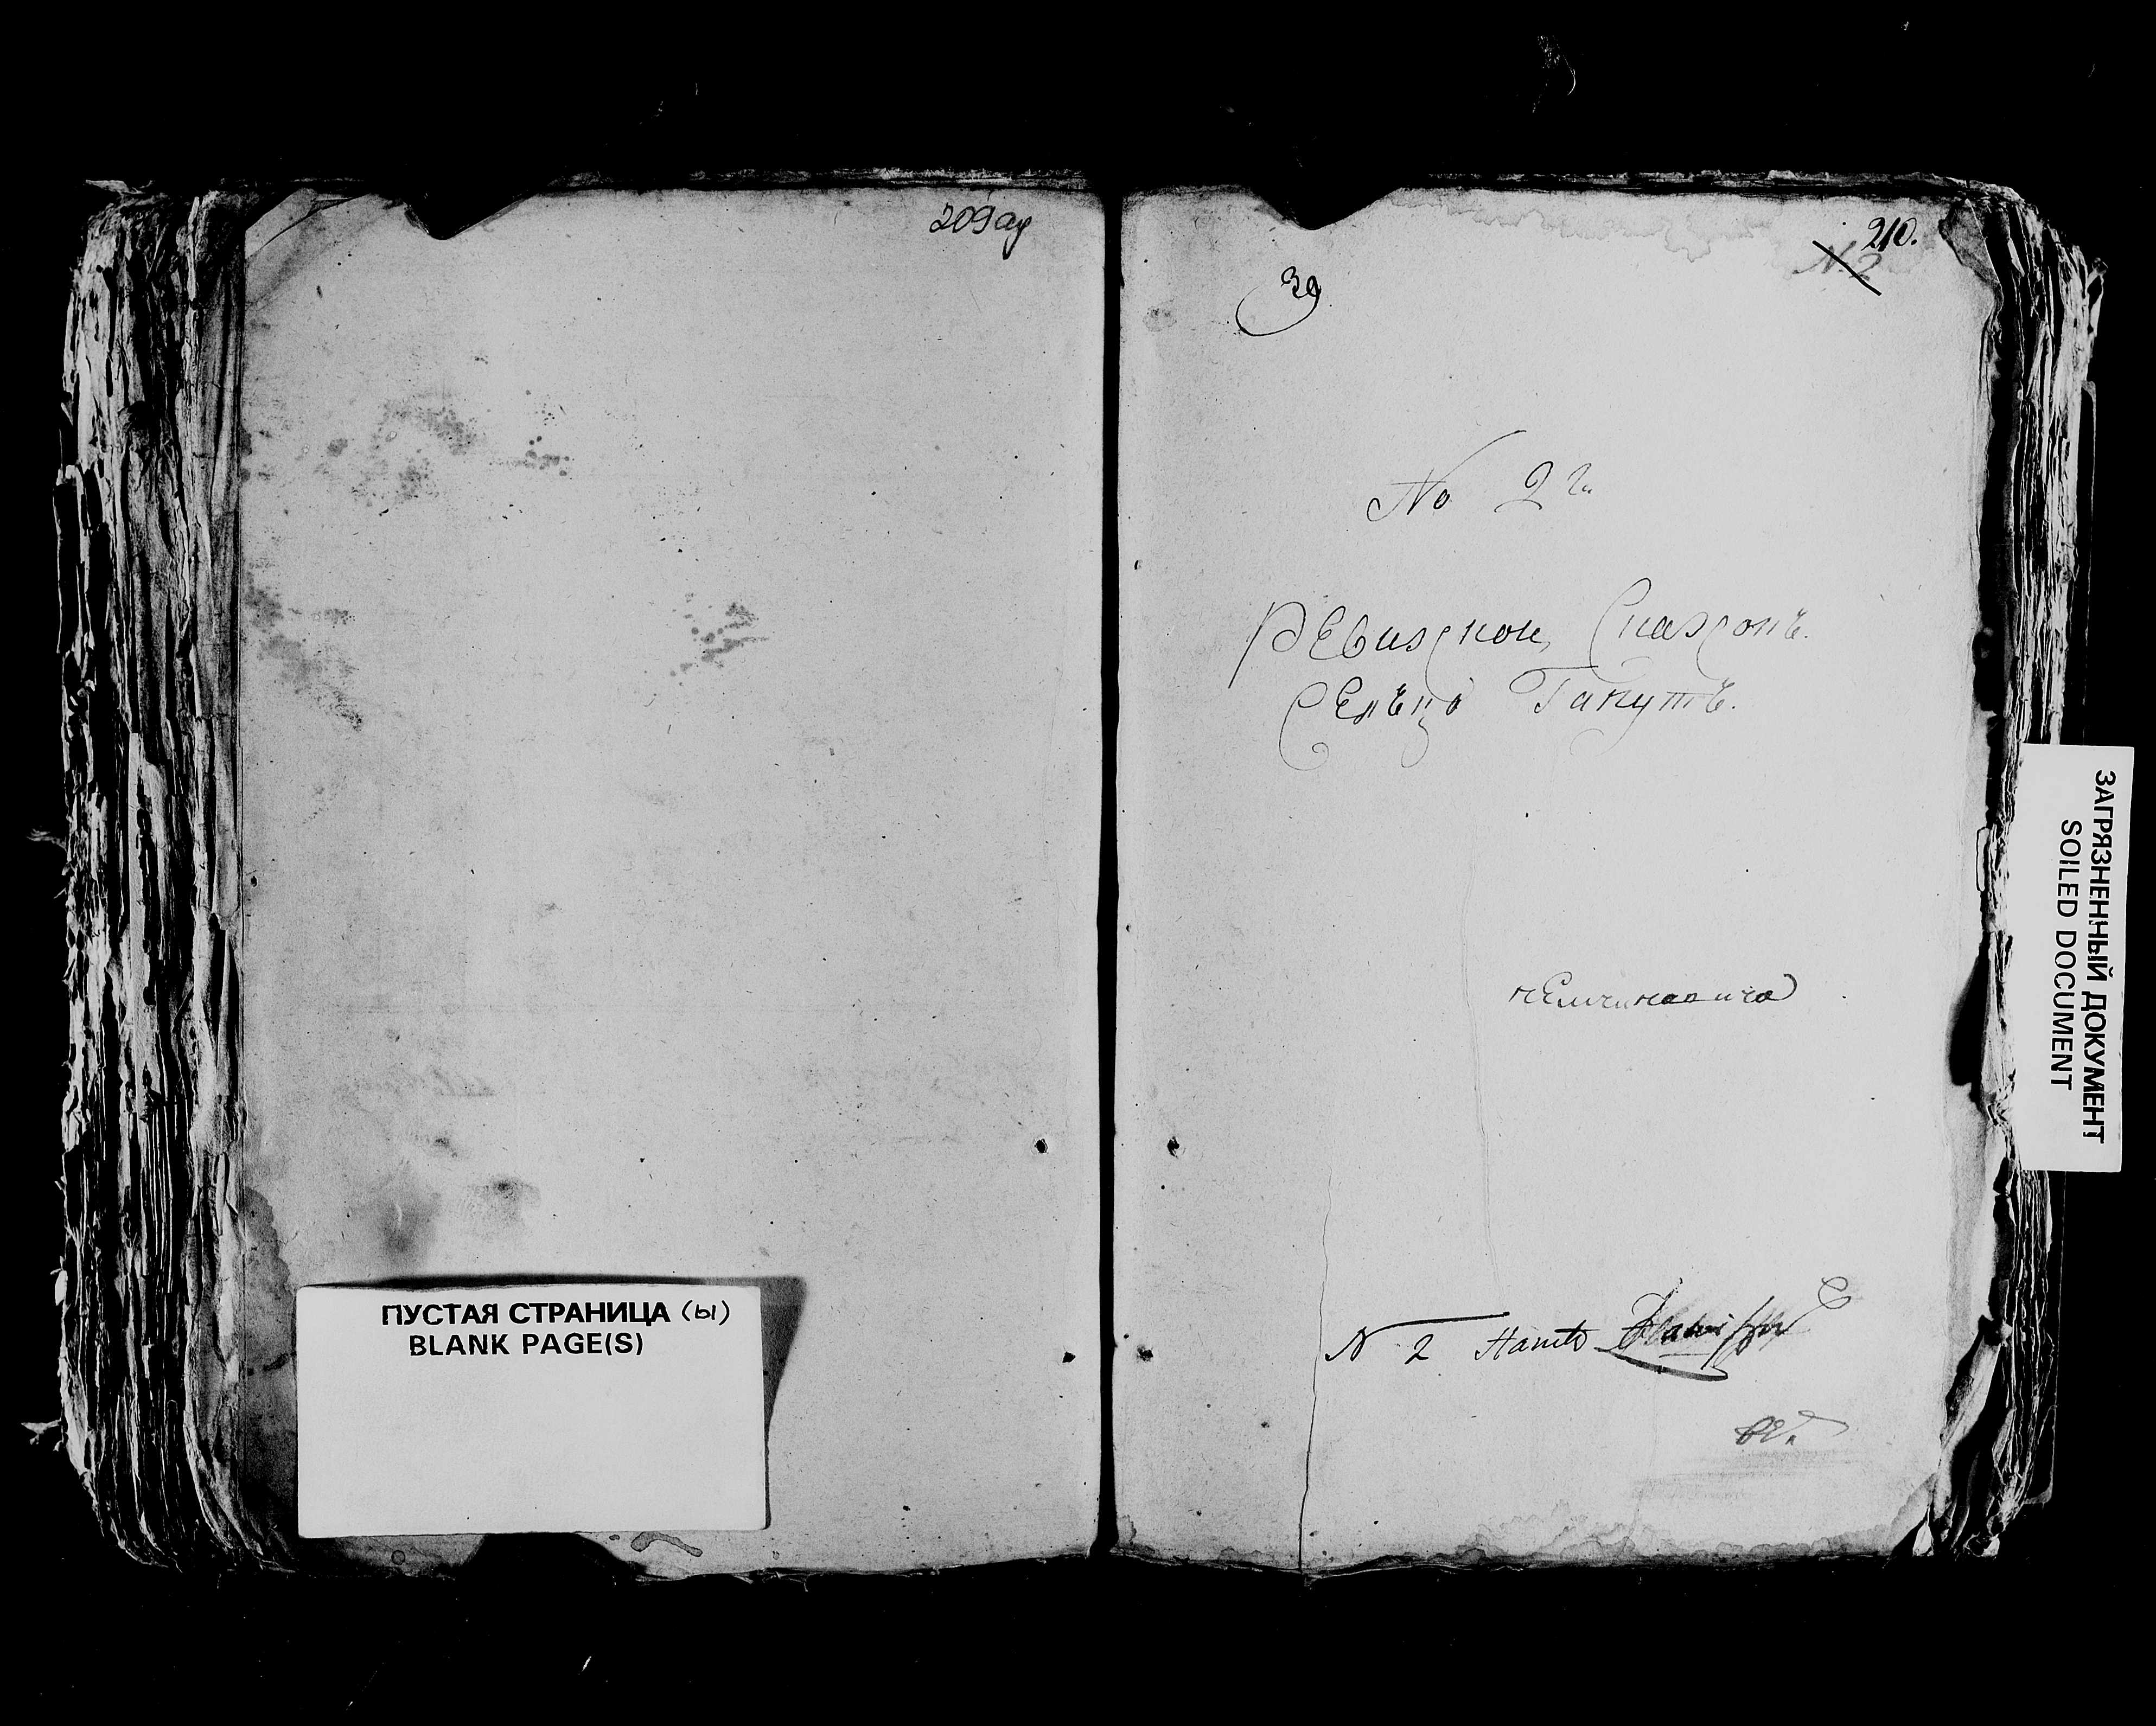 209 ау
ПУСТАЯ СТРАНИЦА (ы)
BLANK PAGE(S)
210.
N. 2
39
No 2й
Ревизской Сказсонъ.
Селѣцо Гапутѣ.
немчиновича
N 2
ЗАГРЯЗНЕННЫЙ ДОКУМЕНТ
SOILED DOCUMENT